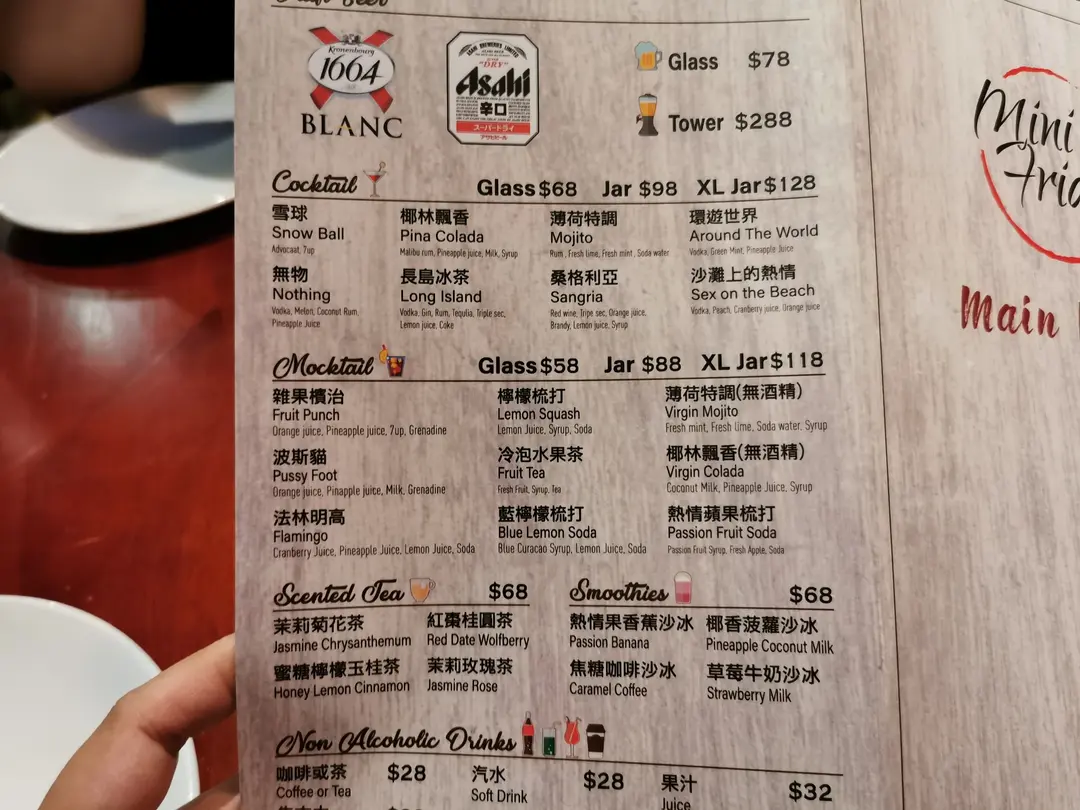 Kronenbourg
1664
BLANC
ASAHI BREWERIES LIMITED
"DRY"
Asahi
辛口
スーパードライ
アサヒビール
Glass $78
Tower $288
Cocktail Glass $68 Jar $98 XL Jar $128
雪球
Snow Ball
Advocaat, 7up
椰林飄香
Pina Colada
Malibu rum, Pineapple juice, Milk, Syrup
薄荷特調
Mojito
Rum, Fresh lime, Fresh mint, Soda water
環遊世界
Around The World
Vodka, Green Mint, Pineapple Juice
無物
Nothing
Vodka, Melon, Coconut Rum,
Pineapple Juice
長島冰茶
Long Island
Vodka, Gin, Rum, Tequlia, Triple sec,
Lemon juice, Coke
桑格利亞
Sangria
Red wine, Tripe sec, Orange juice,
Brandy, Lemon juice, Syrup
沙灘上的熱情
Sex on the Beach
Vodka, Peach, Cranberry juice, Orange juice
Mocktail Glass $58 Jar $88 XL Jar $118
雜果檳治
Fruit Punch
Orange juice, Pineapple juice, 7up, Grenadine
檸檬梳打
Lemon Squash
Lemon Juice, Syrup, Soda
薄荷特調(無酒精)
Virgin Mojito
Fresh mint, Fresh lime, Soda water, Syrup
波斯貓
Pussy Foot
Orange juice, Pinapple juice, Milk, Grenadine
冷泡水果茶
Fruit Tea
Fresh Fruit, Syrup, Tea
椰林飄香(無酒精)
Virgin Colada
Coconut Milk, Pineapple Juice, Syrup
法林明高
Flamingo
Cranberry Juice, Pineapple Juice, Lemon Juice, Soda
藍檸檬梳打
Blue Lemon Soda
Blue Curacao Syrup, Lemon Juice, Soda
熱情蘋果梳打
Passion Fruit Soda
Passion Fruit Syrup, Fresh Apple, Soda
Scented Tea $68
茉莉菊花茶
Jasmine Chrysanthemum
紅棗桂圓茶
Red Date Wolfberry
蜜糖檸檬玉桂茶
Honey Lemon Cinnamon
茉莉玫瑰茶
Jasmine Rose
Smoothies $68
熱情果香蕉沙冰
Passion Banana
椰香菠蘿沙冰
Pineapple Coconut Milk
焦糖咖啡沙冰
Caramel Coffee
草莓牛奶沙冰
Strawberry Milk
Non Alcoholic Drinks
咖啡或茶 $28
Coffee or Tea
汽水 $28
Soft Drink
果汁 $32
Juice
Mini
Main